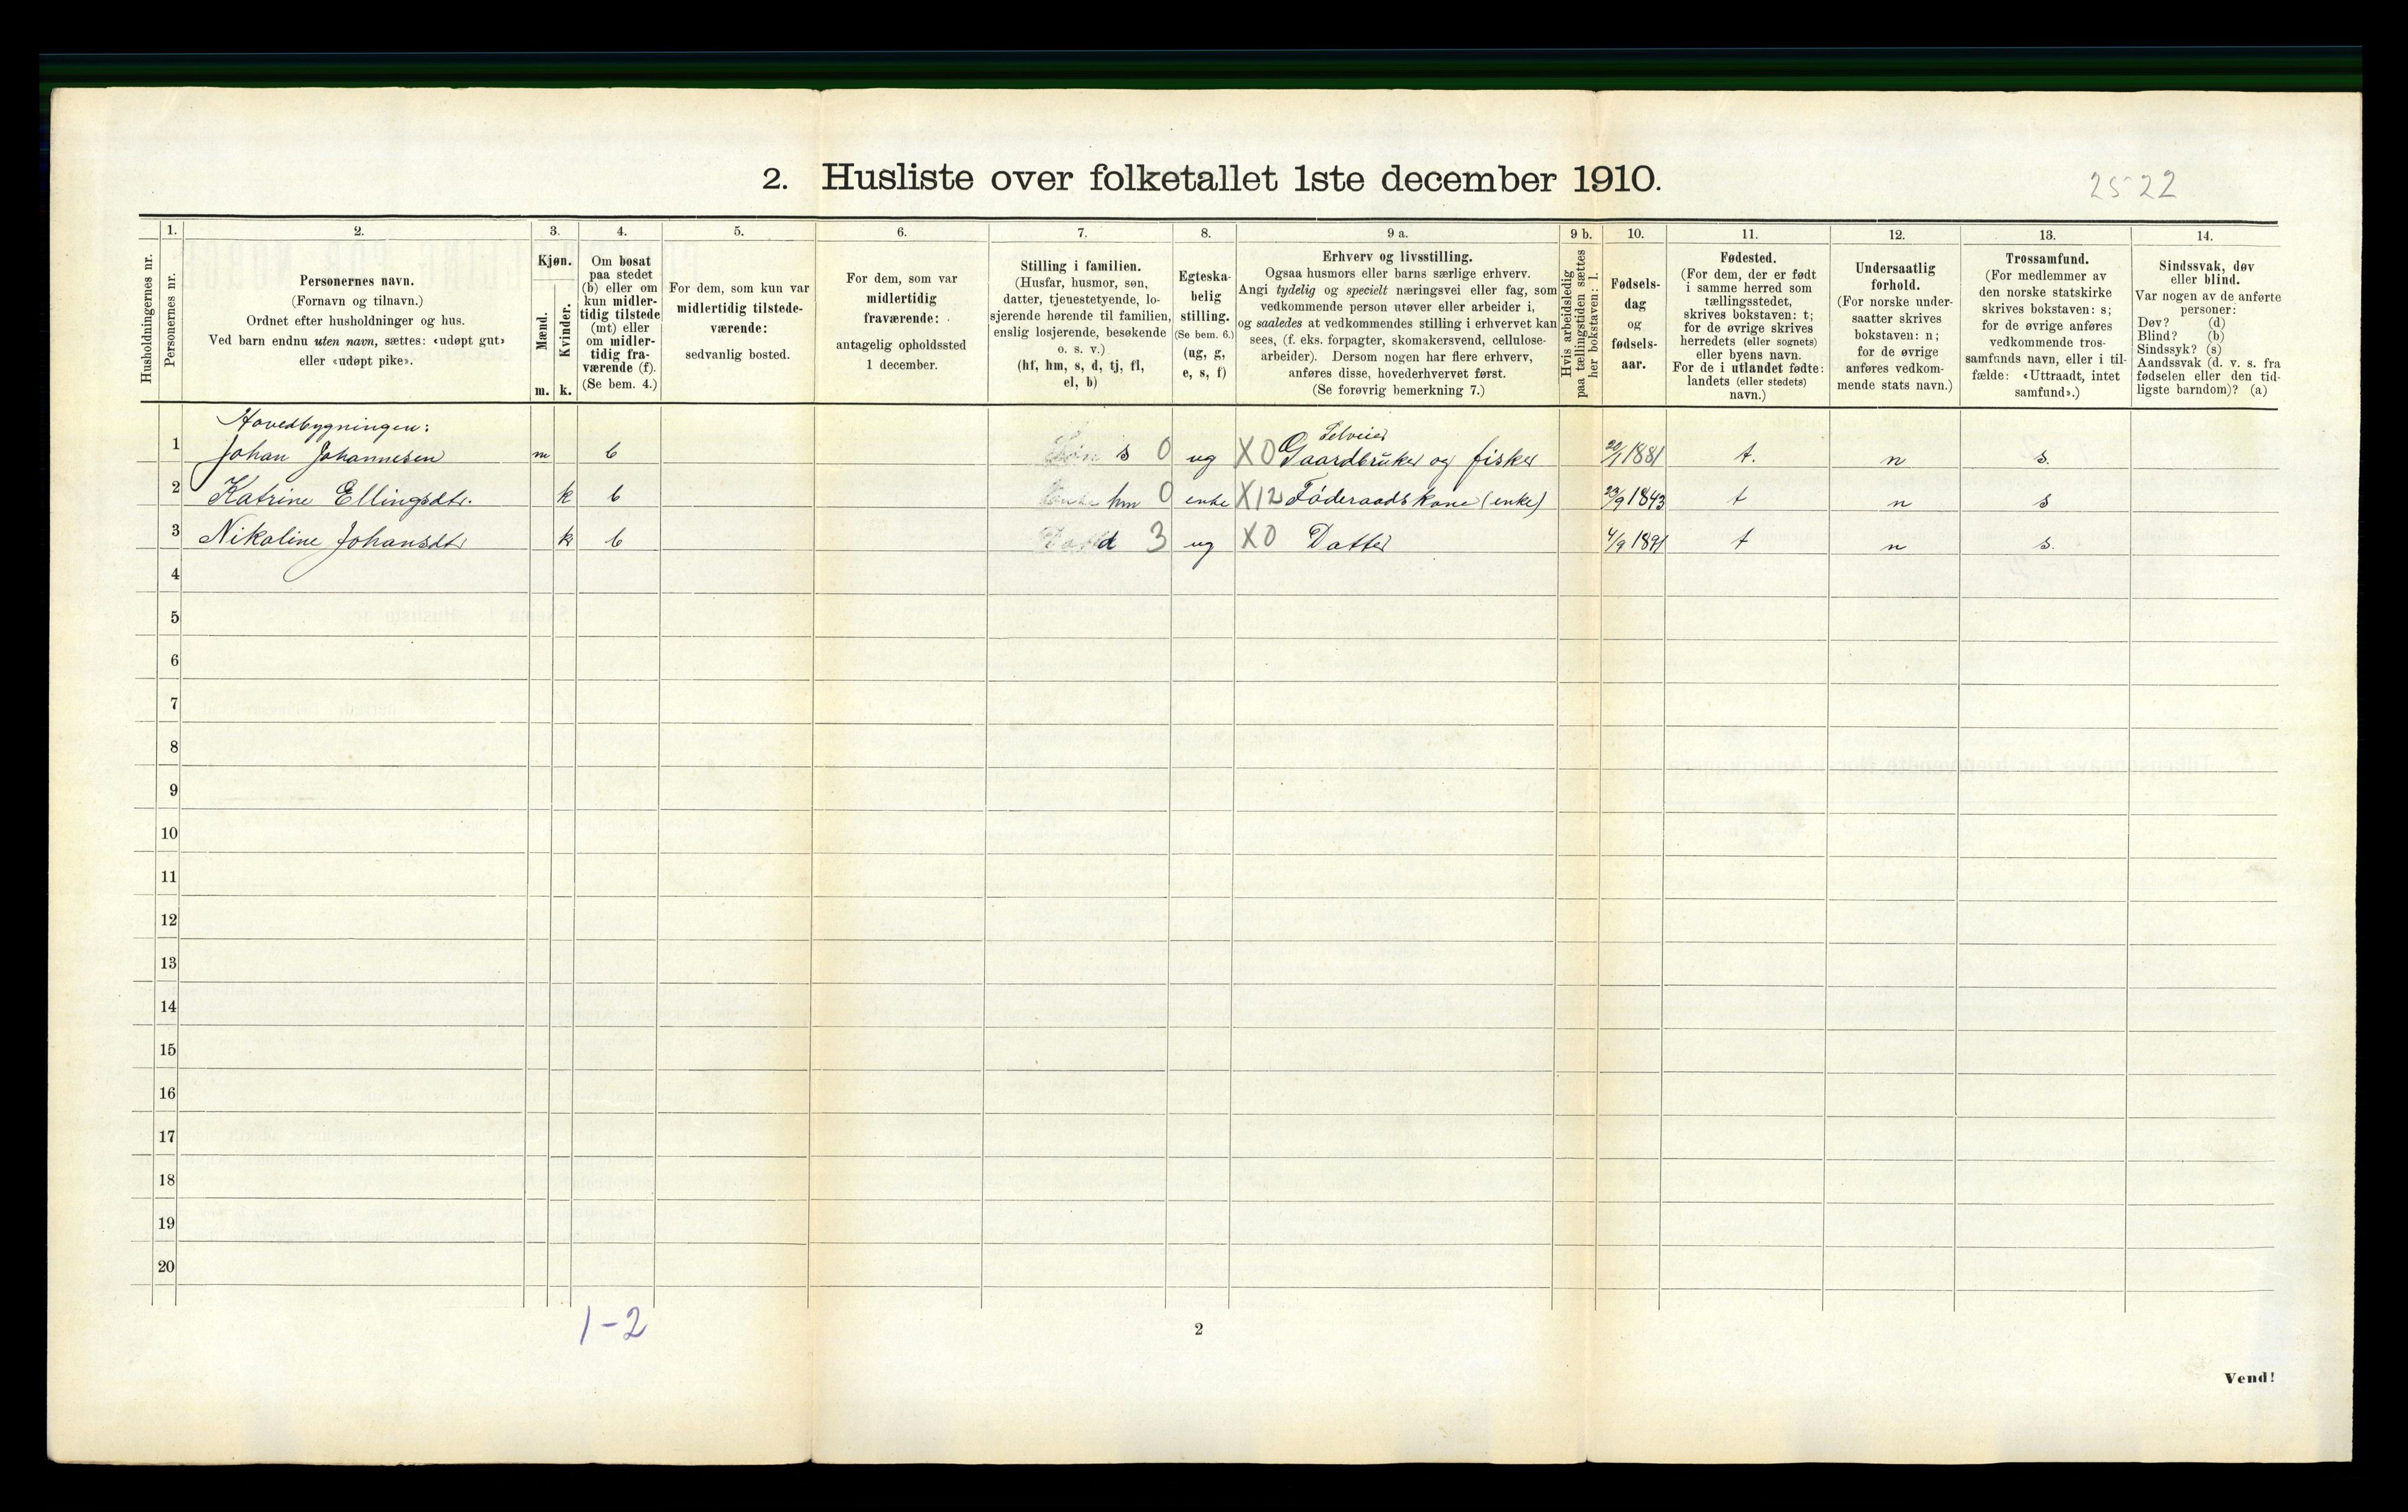 2. Husliste over folketallet 1ste december 1910.
2522
Husholdningernes nr.
1.
Personernes nr.
2.
Personernes navn.
(Fornavn og tilnavn.)
Ordnet efter husholdninger og hus.
Ved barn endnu uten navn, sættes: «udøpt gut»
eller «udøpt pike».
3.
Kjøn.
Mænd.
Kvinder.
m. k.
4.
Om bosat
paa stedet
(b) eller om
kun midler-
tidig tilstede
(mt) eller
om midler-
tidig fra-
værende (f).
(Se bem. 4.)
5.
For dem, som kun var
midlertidig tilstede-
værende:
sedvanlig bosted.
6.
For dem, som var
midlertidig
fraværende:
antagelig opholdssted
1 december.
7.
Stilling i familien.
(Husfar, husmor, søn,
datter, tjenestetyende, lo-
sjerende hørende til familien,
enslig losjerende, besøkende
o. s. v.)
(hf, hm, s, d, tj, fl,
el, b)
8.
Egteska-
belig
stilling.
(Se bem. 6.)
(ug, g,
e, s, f)
9 a.
Erhverv og livsstilling.
Ogsaa husmors eller barns særlige erhverv.
Angi tydelig og specielt næringsvei eller fag, som
vedkommende person utøver eller arbeider i,
og saaledes at vedkommendes stilling i erhvervet kan
sees, (f. eks. forpagter, skomakersvend, cellulose-
arbeider). Dersom nogen har flere erhverv,
anføres disse, hovederhvervet først.
(Se forøvrig bemerkning 7.)
9 b.
Hvis arbeidsledig
paa tællingstiden sættes
her bokstaven: l.
10.
Fødsels-
dag
og
fødsels-
aar.
11.
Fødested.
(For dem, der er født
i samme herred som
tællingsstedet,
skrives bokstaven: t;
for de øvrige skrives
herredets (eller sognets)
eller byens navn.
For de i utlandet fødte:
landets (eller stedets)
navn.)
12.
Undersaatlig
forhold.
(For norske under-
saatter skrives
bokstaven: n;
for de øvrige
anføres vedkom-
mende stats navn.)
13.
Trossamfund.
(For medlemmer av
den norske statskirke
skrives bokstaven: s;
for de øvrige anføres
vedkommende tros-
samfunds navn, eller i til-
fælde: «Uttraadt, intet
samfund».)
14.
Sindssvak, døv
eller blind.
Var nogen av de anførte
personer:
Døv? (d)
Blind? (b)
Sindssyk? (s)
Aandssvak (d. v. s. fra
fødselen eller den tid-
ligste barndom)? (a)
Hovedbygningen:
Selveier
1 Johan Johannesen m b Søn s 0 ug X0 Gaardbruker og fisker 1881 t. n s.
2 Katrine Ellingsdtr. k b Enke hm 0 enke X12 Föderaadskone (enke) 1843 t n s
3 Nikoline Johansdtr k b d 3 ug X0 Datter 4/9 1891 t n s.
4
5
6
7
8
9
10
11
12
13
14
15
16
17
18
19
20
1-2
2
Vend!